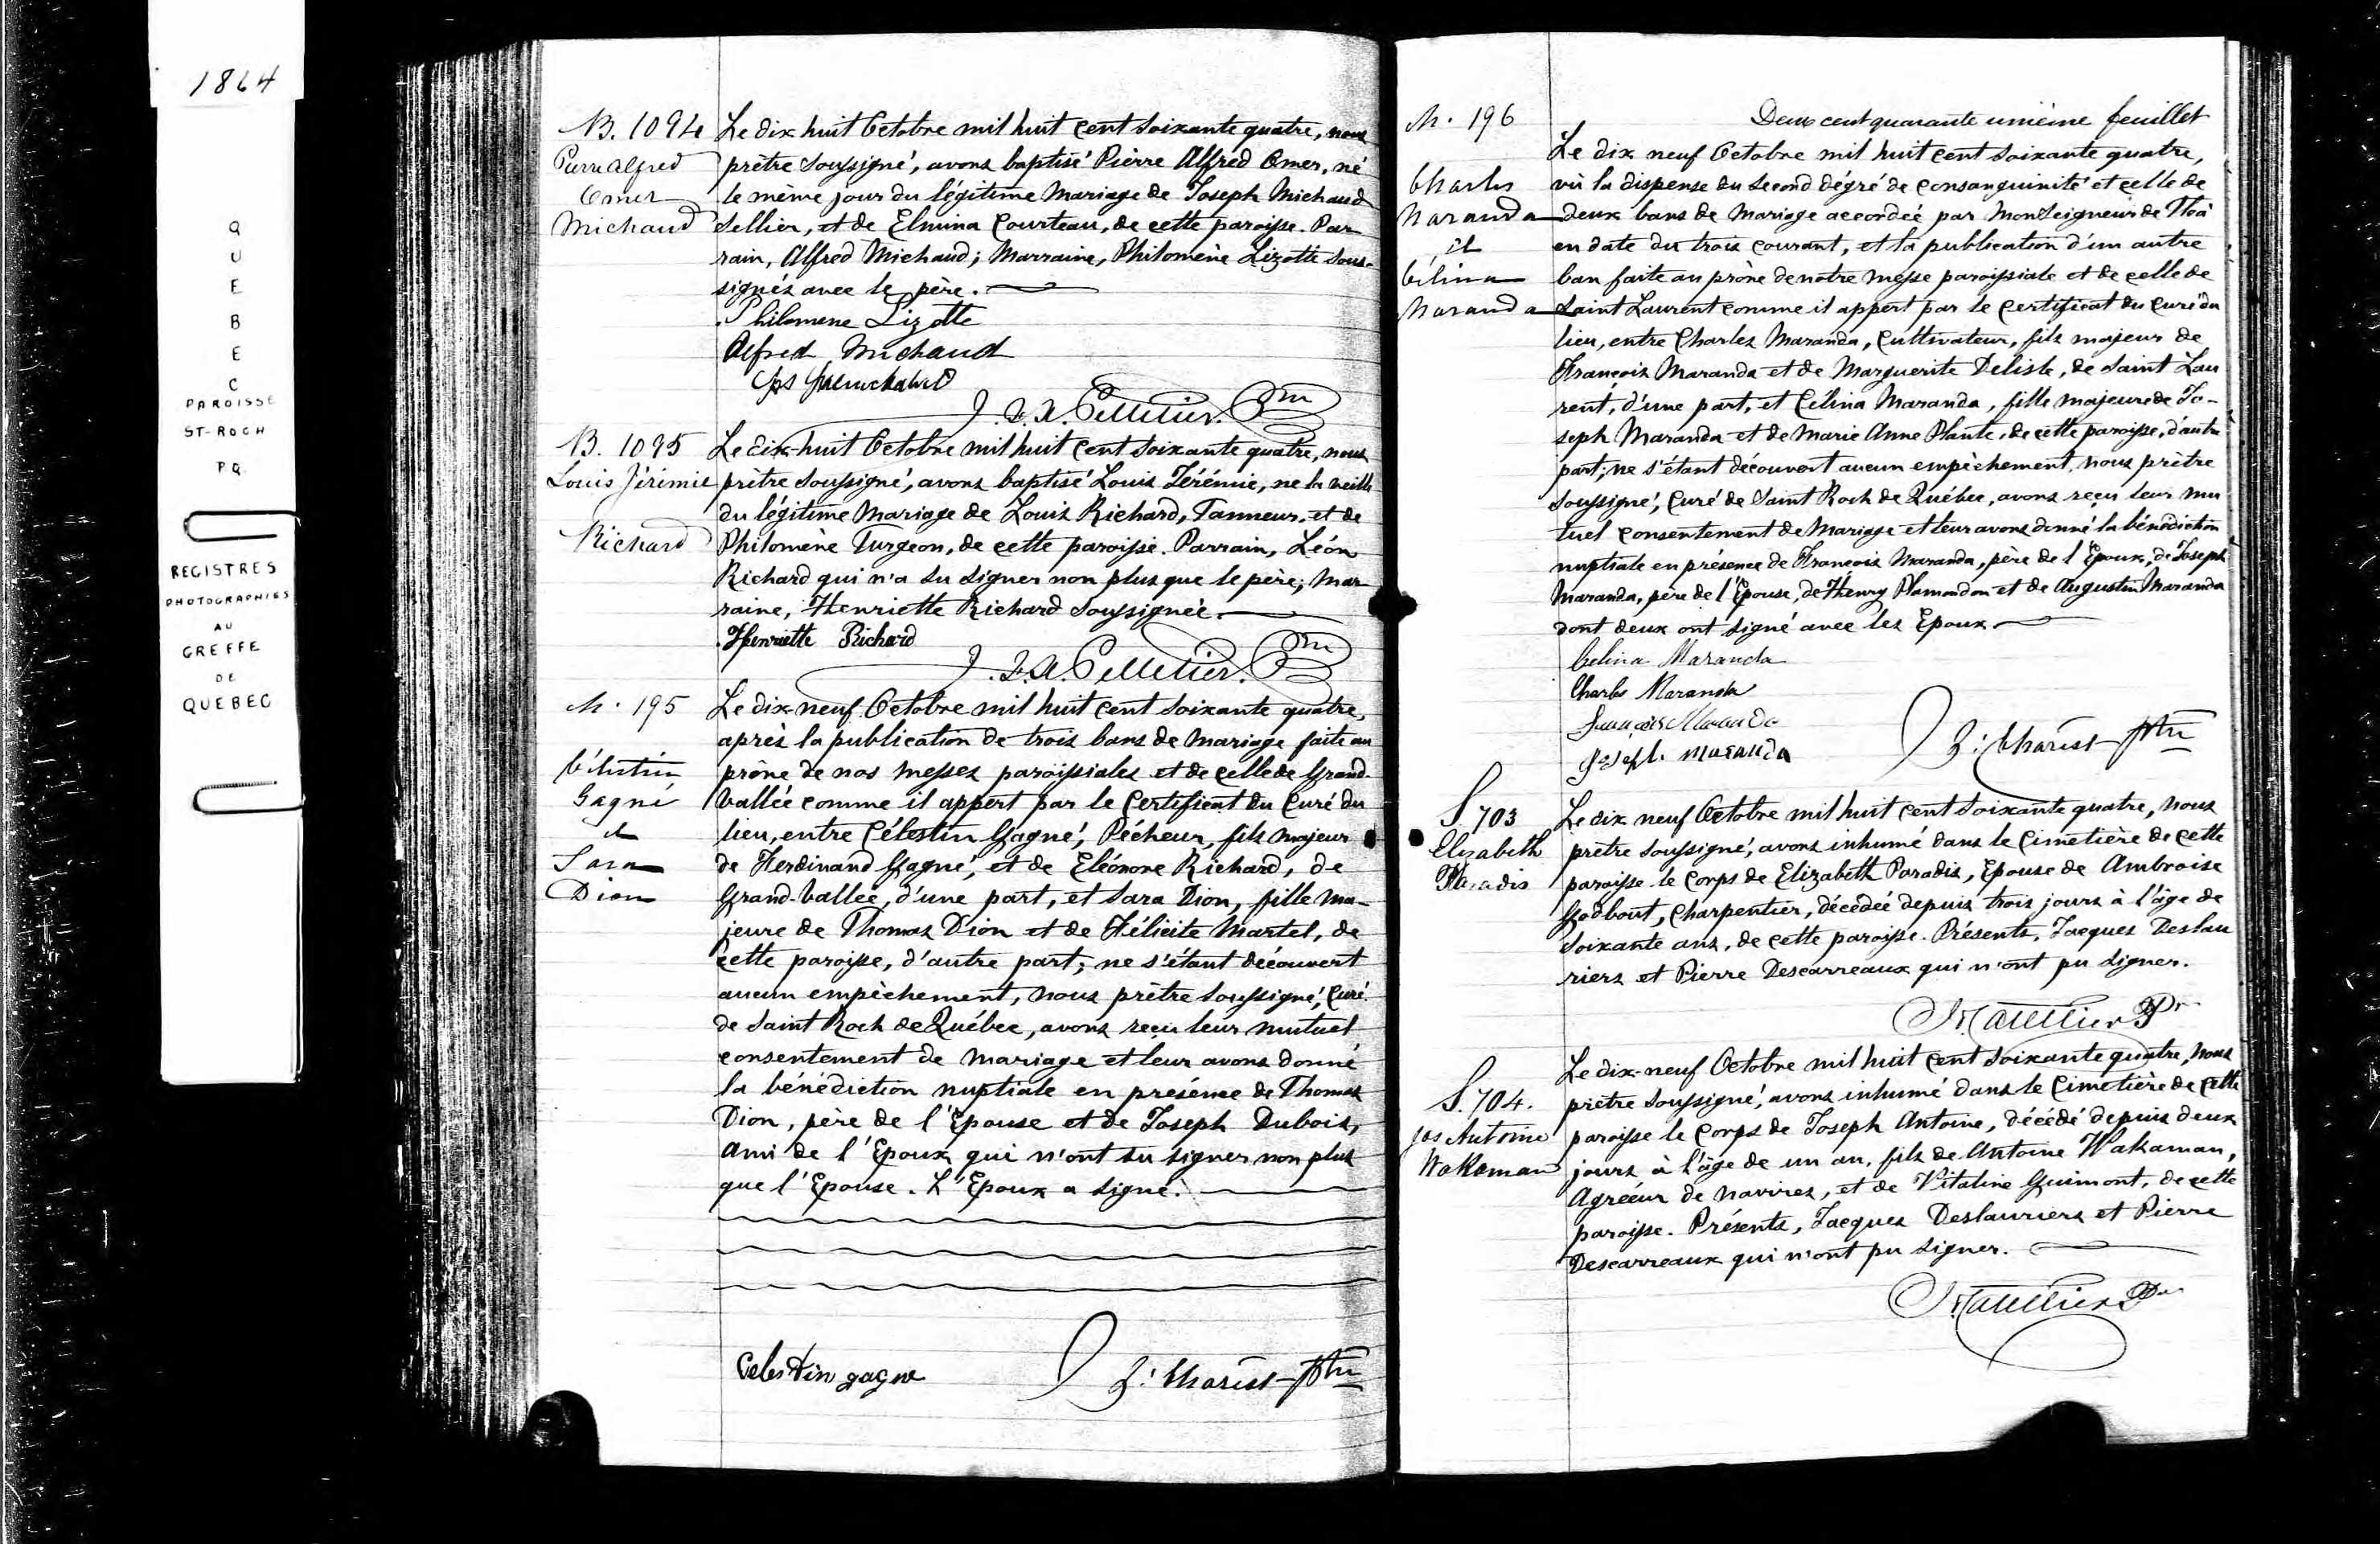 1864
QUEBEC
PAROISSE
ST-ROCH
P Q
REGISTRES
PHOTOGRAPHIES
AU
GREFFE
DE
QUEBEC
B. 1094
Pierre Alfred
Omer
Michaud
Le dix huit Octobre mil huit cent soixante quatre, nous
prêtre soussigné, avons baptisé Pierre Alfred Omer, né
le même jour du légitime mariage de Joseph Michaud
Sellier, et de Elmina Courteau, de cette paroisse. Par
rain, Alfred Michaud; Marraine, Philomène Lizotte sous-
signés avec le père.
Philomene Lizotte
Alfred Michaud
J. Pelletier. Ptre
B. 1095
Louis Jérémie
Richard
Le dix-huit Octobre mil huit cent soixante quatre, nous
prêtre soussigné, avons baptisé Louis Jérémie, né la veille
du légitime mariage de Louis Richard, Tanneur, et de
Philomène Turgeon, de cette paroisse. Parrain, Léon
Richard qui n'a su signer non plus que le père; Mar
raine, Henriette Richard soussignée.
Henriette Richard
J. Pelletier. Ptre
M. 195
Célestin
Gagné
et
Sara
Dion
Le dix-neuf Octobre mil huit cent soixante quatre,
après la publication de trois bans de mariage faite au
prône de nos messes paroissiales et de celle de Grand-
Vallée comme il appert par le Certificat du Curé du
lieu, entre Célestin Gagné, Pêcheur, fils majeur
de Ferdinand Gagné, et de Eléonore Richard, de
Grand-Vallée, d'une part, et Sara Dion, fille ma-
jeure de Thomas Dion et de Félicite Martel, de
cette paroisse, d'autre part; ne s'étant découvert
aucun empêchement, nous prêtre soussigné, Curé
de Saint Roch de Québec, avons reçu leur mutuel
consentement de mariage et leur avons donné
la bénédiction nuptiale en présence de Thomas
Dion, père de l'Epouse et de Joseph Dubois,
ami de l'Epoux qui n'ont su signer non plus
que l'Epouse. L'Epoux a signé.
Celestin gagne
Z: Charest Ptre
M. 196
Charles
Maranda
et
Célina
Maranda
Deux cent quarante unième feuillet
Le dix neuf Octobre mil huit cent soixante quatre,
vû la dispense du second dégré de consanguinité et celle de
deux bans de mariage accordée par Monseigneur de Tloà
en date du trois courant, et la publication d'un autre
ban faite au prône de notre messe paroissiale et de celle de
Saint Laurent comme il appert par le certificat du Curé du
lieu, entre Charles Maranda, Cultivateur, fils majeur de
François Maranda et de Marguerite Delisle, de Saint Lau
rent, d'une part, et Célina Maranda, fille majeure de Jo-
seph Maranda et de Marie Anne Plante, de cette paroisse, d'autre
part; ne s'étant découvert aucun empêchement, nous prêtre
soussigné, Curé de Saint Roch de Québec, avons reçu leur mu
tuel consentement de mariage et leur avons donné la bénédiction
nuptiale en présence de François Maranda, père de l'Epoux, de Joseph
Maranda, père de l'Epouse, de Henry Plamondon et de Augustin Maranda
dont deux ont signé avec les Epoux
Celina Maranda
Charles Maranda
François Maranda
Joseph Maranda
Z: Charest Ptre
S. 703
Elizabeth
Paradis
Le dix neuf Octobre mil huit cent soixante quatre, nous
prêtre soussigné, avons inhumé dans le Cimetière de cette
paroisse le corps de Elizabeth Paradis, Epouse de Ambroise
Godbout, Charpentier, décédée depuis trois jours à l'âge de
soixante ans, de cette paroisse. Présents, Jacques Deslau
riers et Pierre Descarreaux qui n'ont pu signer.
S. 704.
Jos Antoine
Wakaman
Le dix-neuf Octobre mil huit cent soixante quatre, nous
prêtre soussigné, avons inhumé dans le Cimetière de cette
paroisse le corps de Joseph Antoine, décédé depuis deux
jours à l'âge de un an, fils de Antoine Wakaman,
Agréeur de navires, et de Vitaline Guimont, de cette
paroisse. Présents, Jacques Deslauriers et Pierre
Descarreaux qui n'ont pu signer.